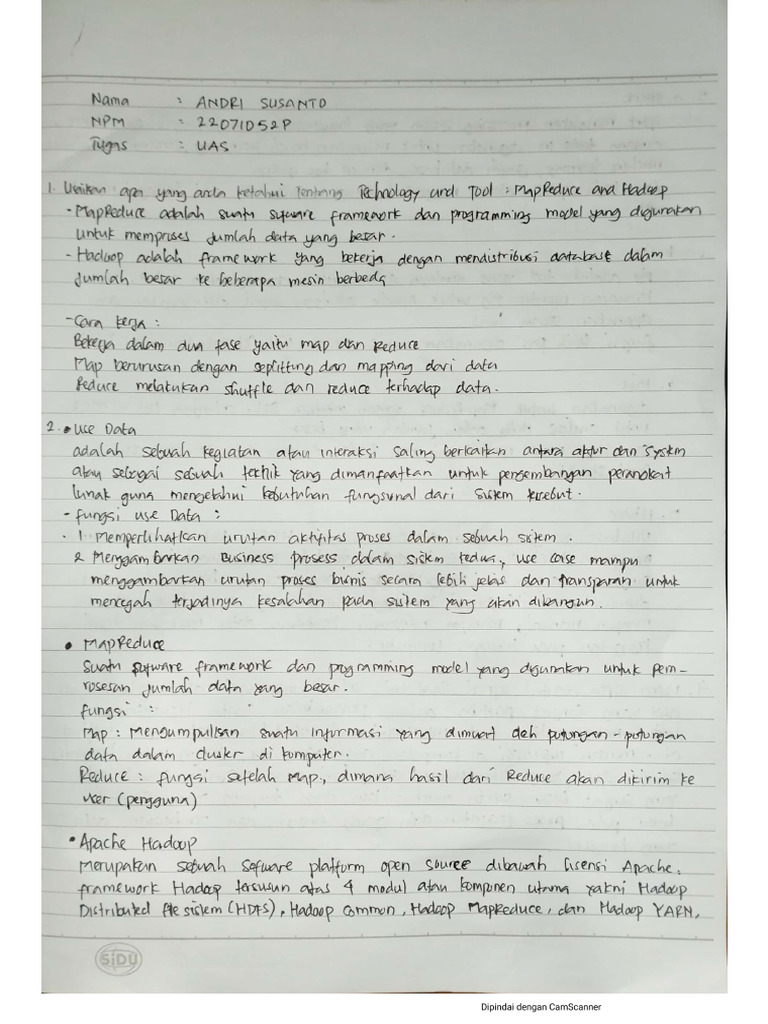 Nama : ANDRI SUSANTO
NPM : 22071052P
Tugas : UAS
1. Uraikan apa yang anda ketahui tentang Technology and Tool : MapReduce and Hadoop
- MapReduce adalah suatu sofware framework dan programming model yang digunakan
untuk memproses jumlah data yang besar.
- Hadoop adalah framework yang bekerja dengan mendistribusi database dalam
jumlah besar ke beberapa mesin berbeda
- Cara kerja :
Bekerja dalam dua fase yaitu map dan Reduce
Map berurusan dengan seplitting dan mapping dari data
Reduce melakukan shuffle dan reduce terhadap data.
2. • Use Data
adalah sebuah kegiatan atau interaksi saling berkaitan antara aktor dan system
atau sebagai sebuah teknik yang dimanfaatkan untuk pengembangan perangkat
lunak guna mengetahui kebutuhan fungsional dari sistem tersebut.
- fungsi use Data :
1. Memperlihatkan urutan aktifitas proses dalam sebuah sistem.
2. Menggambarkan Business prosess dalam sistem kedua, use case mampu
menggambarkan urutan proses bisnis secara lebih jelas dan transparan untuk
mencegah terjadinya kesalahan pada sistem yang akan dibangun.
• MapReduce
Suatu sofware framework dan programming model yang digunakan untuk pem-
rosesan jumlah data yang besar.
fungsi :
Map : Mengumpulkan suatu informasi yang dimuat oleh potongan-potongan
data dalam cluster di komputer.
Reduce : fungsi setelah Map, dimana hasil dari Reduce akan dikirim ke
user (pengguna)
• Apache Hadoop
Merupakan sebuah Sofware platform open source dibawah lisensi Apache.
framework Hadoop tersusun atas 4 modul atau komponen utama yakni Hadoop
Distributed file sistem (HDFS), Hadoop Common, Hadoop MapReduce, dan Hadoop YARN.
SIDU
Dipindai dengan CamScanner